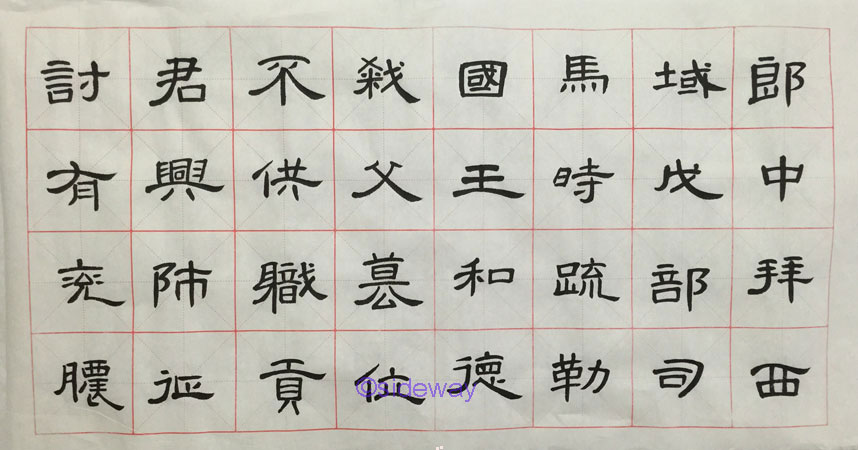 郎中拜西
域戊部司
馬時疏勒
國王和德
弒父篡位
不供職貢
君興師征
討有兗膿
©sideway